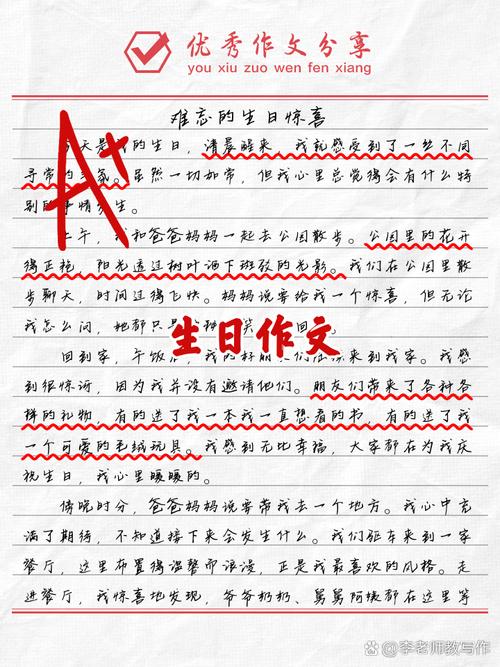 优秀作文分享
you xiu zuo wen fen xiang
难忘的生日惊喜
天是的生日，清晨醒来，我就感受到了一丝不同
寻常的氛。虽然一切如常，但我心里总觉得会有什么特
别的事情生。
上午，和爸爸妈妈一起去公园散步。公园里的花开
得正艳，阳光透过树叶洒下斑驳的光影。我们在公园里散
步聊天，时间过得飞快。妈妈说要给我一个惊喜，但无论
我怎么问，她都只种笑回
生日作文
回到家，午饭后，我的朋来到我家。我感
到很惊讶，因为我并没有邀请他们。朋友们带来了各种各
样的礼物，有的送了我一本我一直想看的书，有的送了我
一个可爱的毛绒玩具。我感到无比幸福，大家都在为我庆
祝生日，我心里暖暖的。
傍晚时分，爸爸妈妈说要带我去一个地方。我心中充
满了期待，不知道接下来会发生什么。我们驱车来到一家
餐厅，这里布置得温馨而浪漫，正是我最喜欢的风格。走
进餐厅，我惊喜地发现，爷爷奶奶、舅舅阿姨都在这里等
A+
李老师教写作